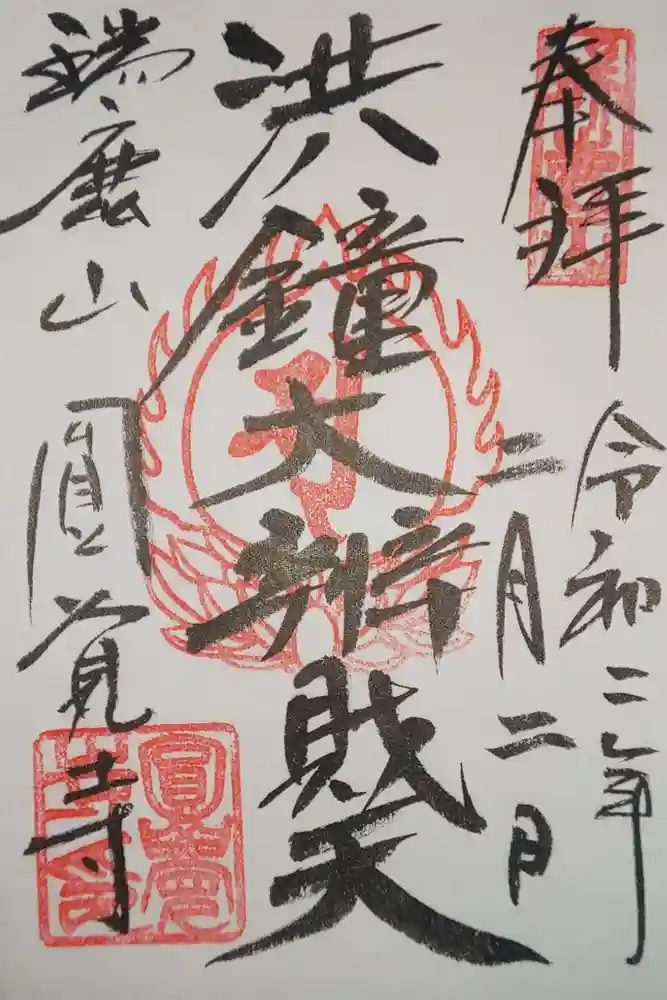 奉拝
令和二年
二月二日
洪鐘大辨財天
瑞鹿山
圓覚寺